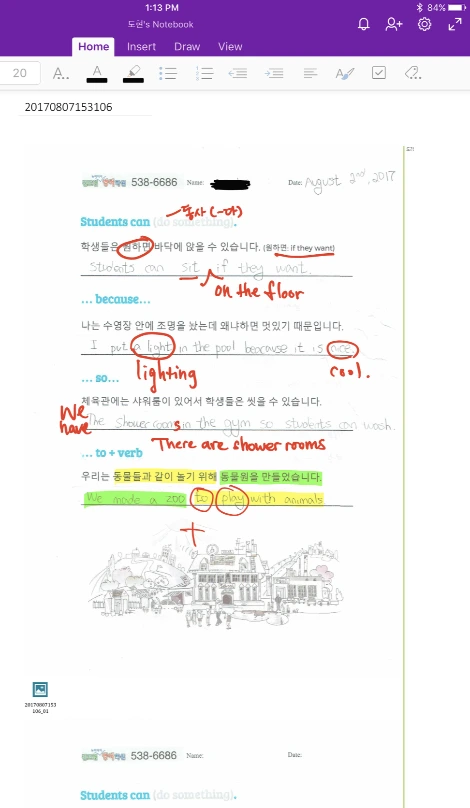 1:13 PM
84%
도현's Notebook
Home Insert Draw View
20 A.. A
20170807153106
538-6686 Name: Date: August 2nd, 2017
Students can (do something). – 동사 (~다)
학생들은 원하면 바닥에 앉을 수 있습니다. (원하면: if they want)
Students can sit if they want.
on the floor
... because...
나는 수영장 안에 조명을 놨는데 왜냐하면 멋있기 때문입니다.
I put a light in the pool bec because it is nice.
lighting cool.
... so...
체육관에는 샤워룸이 있어서 학생들은 씻을 수 있습니다.
We have
The shower rooms in the gym so students can wash.
There are shower rooms
... to + verb
우리는 동물들과 같이 놀기 위해 동물원을 만들었습니다.
We made a zoo to play with animals
+
20170807153
106_01
538-6686 Name: Date:
Students can (do something).